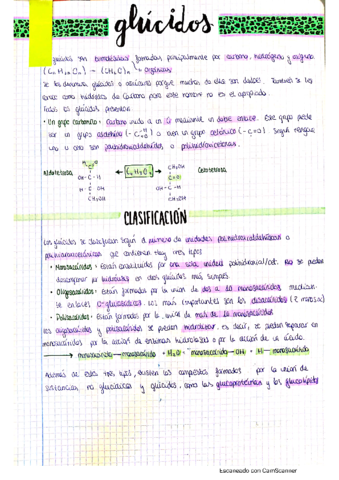 glúcidos
glúcidos son biomoléculas formadas principalmente por carbono, hidrógeno y oxígeno
(CnH2nOn) → (CH2O)n orgánicas
Se les denomina glúcidos o azúcares porque muchos de ellos son dulces. También se les
conoce como hidratos de carbono pero este nombre no es el apropiado.
Todos los glúcidos presentan
• Un grupo carbonilo: Carbono unido a un O mediante un doble enlace. Este grupo puede
ser un grupo aldehído (-C=O-H) o bien un grupo cetónico (-C=O). Según tengan
uno u otro son polihidroxialdehídos o polihidroxicetonas.
Aldotetrosa
C4H8O4
Cetotetrosa
CH2OH
C=O
H-C-OH
CH2OH
CLASIFICACIÓN
Los glúcidos se clasifican según el número de unidades polihidroxialdehídicas o
polihidroxicetónicas que contienen hay tres tipos
• Monosacáridos: Están constituidos por una sola unidad polihidroxial/cet. No se pueden
descomponer por hidrólisis en otros glúcidos más simples.
• Oligosacáridos: Están formados por la unión de dos a 10 monosacáridos mediante
enlaces O-glucosídicos. Los más importantes son los disacáridos (2 monosac)
• Polisacáridos: Están formados por la unión de más de 10 monosacáridos
Los oligosacáridos y polisacáridos se pueden hidrolizar, es decir, se pueden separar en
monosacáridos por la acción de enzimas hidrolasas o por la acción de un ácido.
monosacárido — monosacárido + H2O → monosacárido — OH + H — monosacárido
Además de estos tres tipos, existen los compuestos formados por la unión de
sustancias no glucídicas y glúcidos, como las glucoproteínas y los glucolípidos
Escaneado con CamScanner